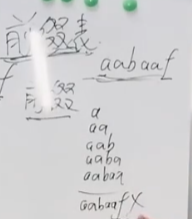 前缀表
aabaaf
f
前缀
a
aa
aab
aaba
aabaa
aabaaf X